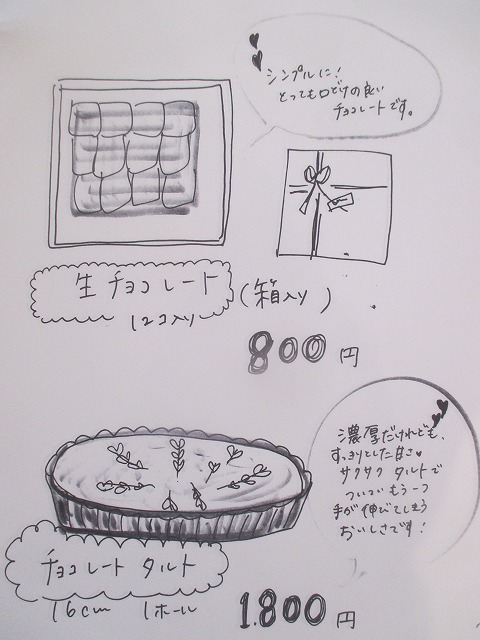 シンプルに!
とっても口どけの良い
チョコレートです。
生チョコレート(箱入り)
12コ入り
800円
濃厚だけれども、
すっきりとした甘さ♥
サクサク タルトで
ついついもう一つ
手が伸びてしまう
おいしさです!
チョコレート タルト
16cm 1ホール
1.800円